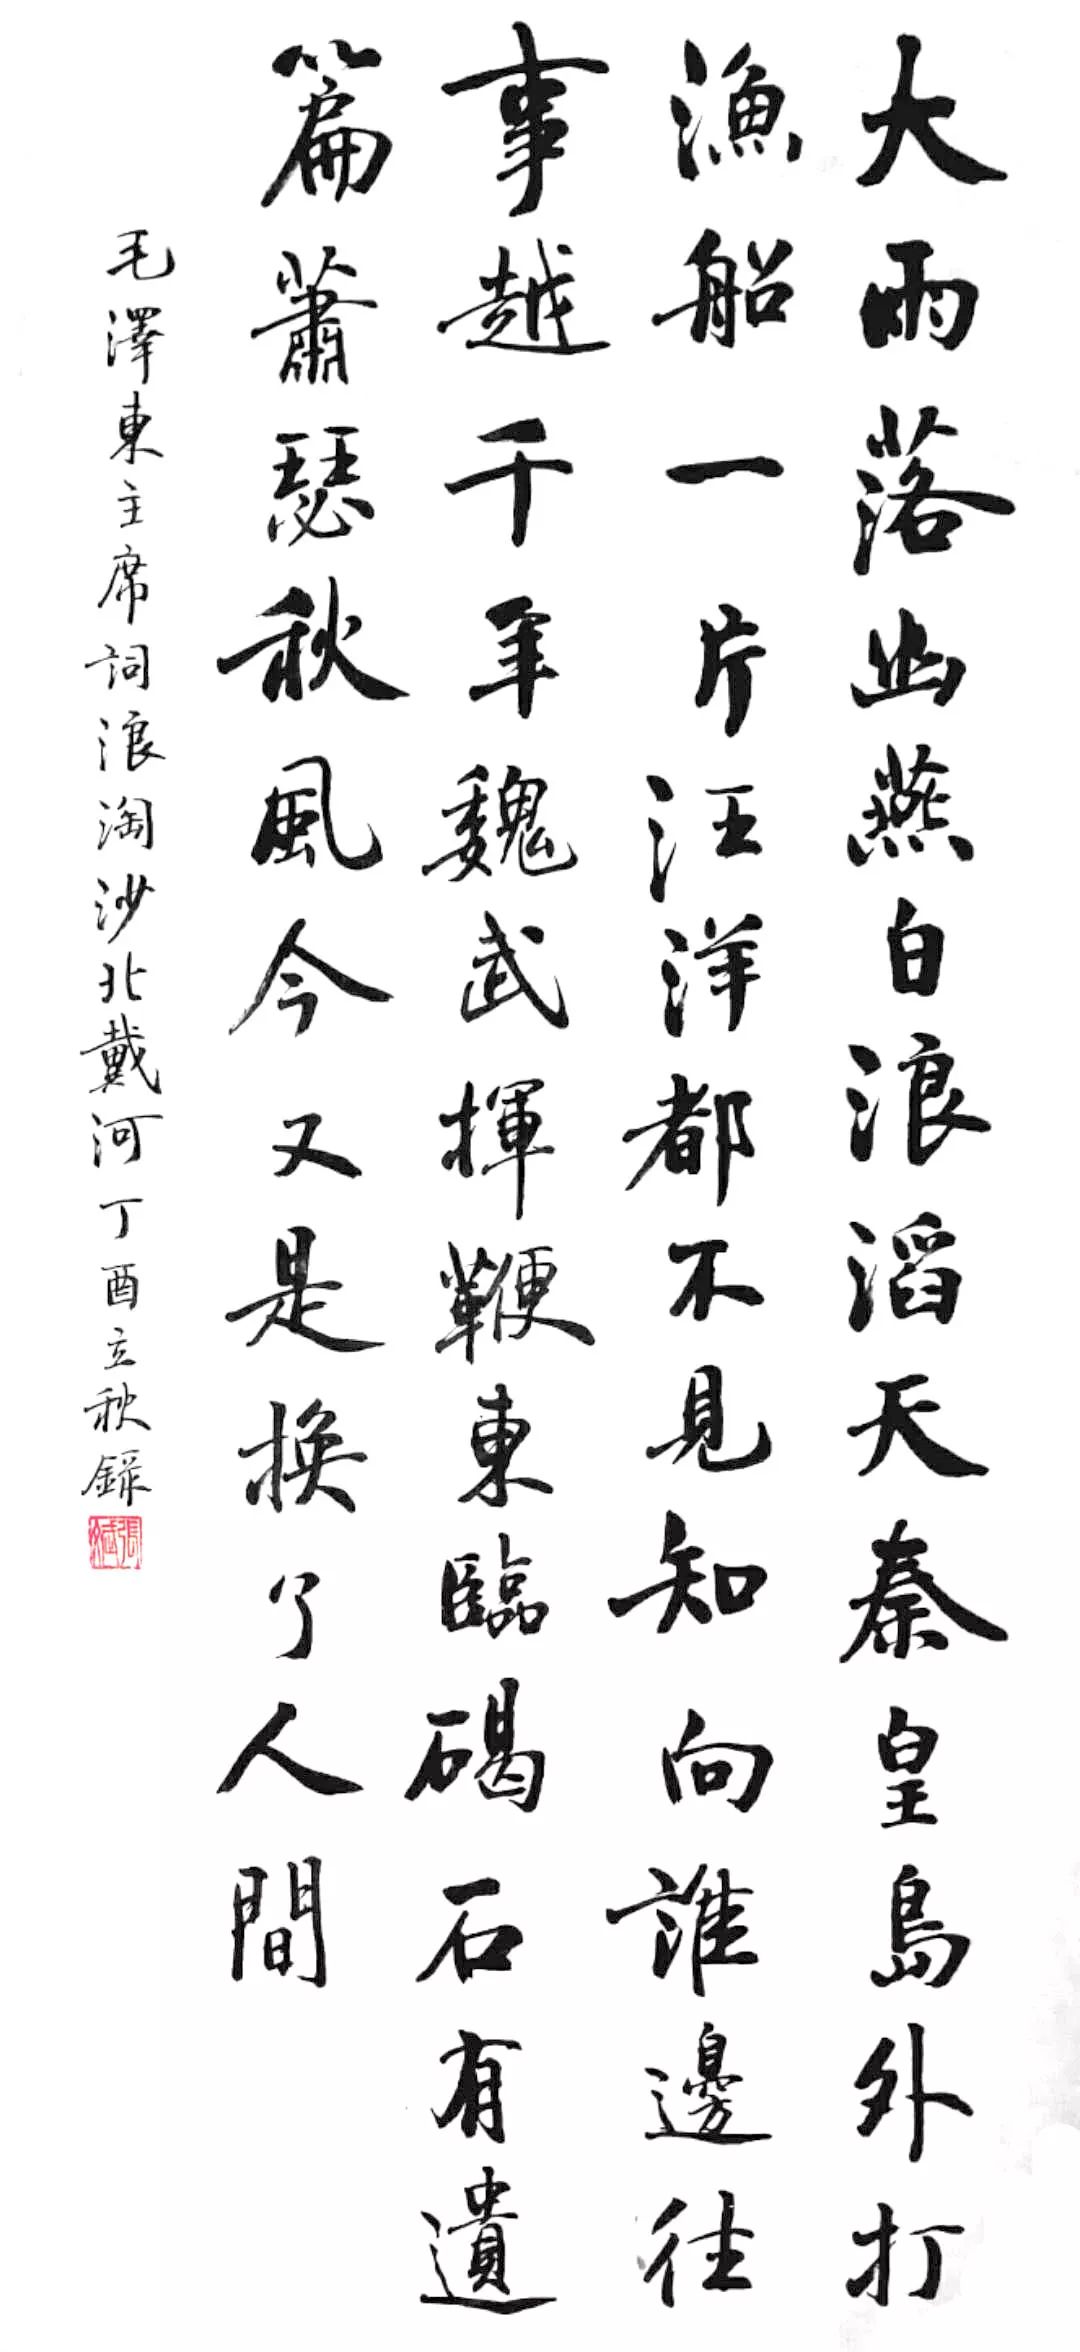 大雨落幽燕白浪滔天秦皇島外打
漁船一片汪洋都不見知向誰邊往
事越千年魏武揮鞭東臨碣石有遺
篇蕭瑟秋風今又是換了人間
毛澤東主席詞浪淘沙北戴河丁酉立秋錄